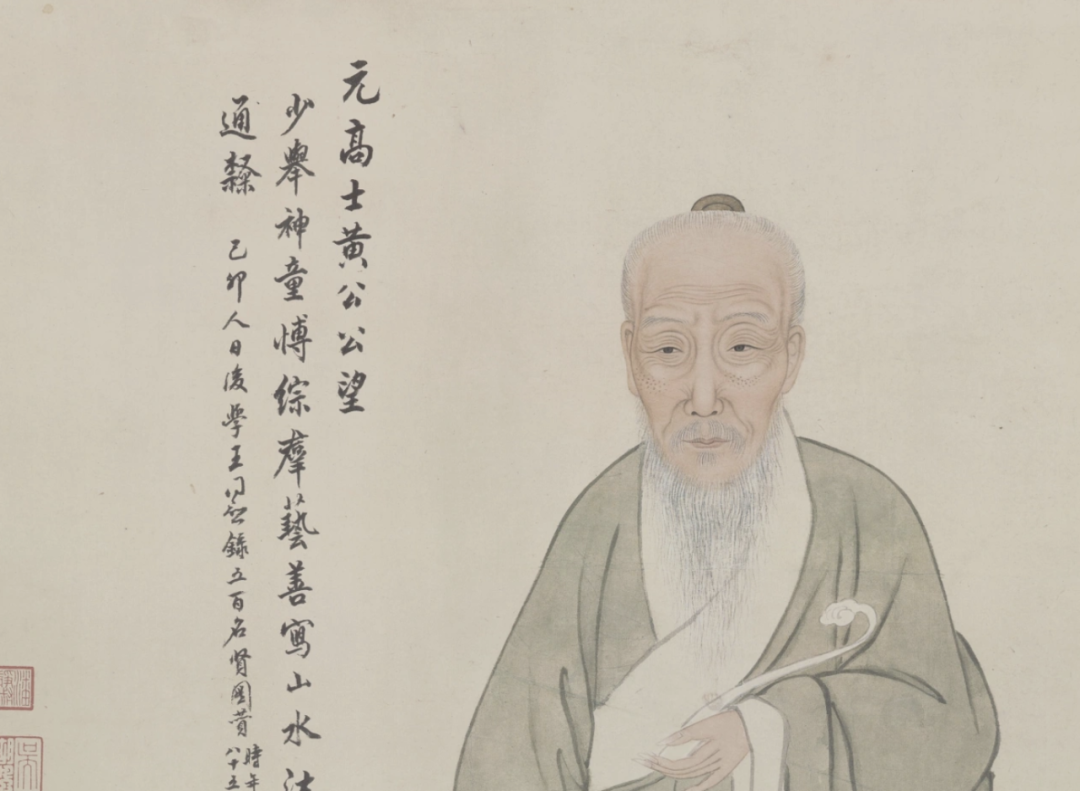 元高士黃公公望
少舉神童愽綜羣藝善寫山水
通隸 己卯人日後學王同愈錄五百名賢圖贊
時年
八十五